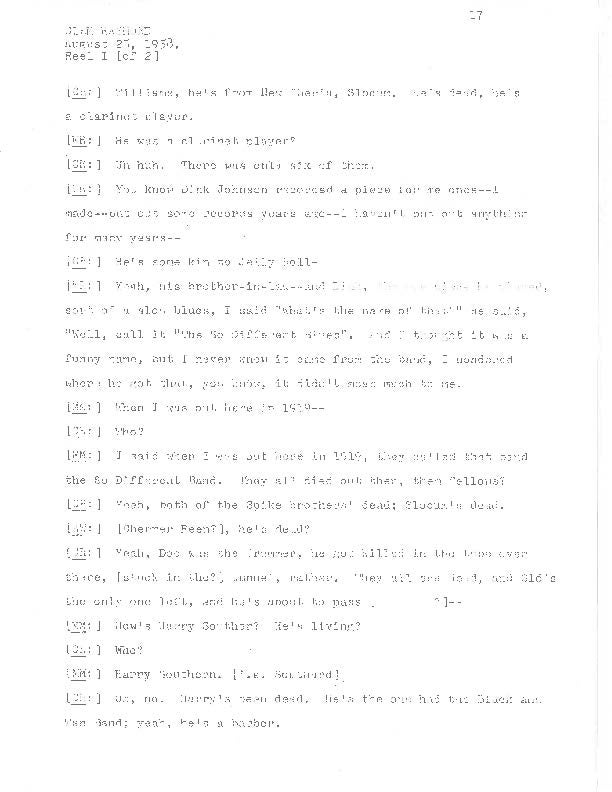 17
August 25, 1958.
Reel I [of 2]
Williams, he's from New Iberia, Slocum. He's dead, he's
a clarinet player.
He was a clarinet player?
[DR:] Uh huh. There was only six of them.
You know Dink Johnson recorded a piece for me once--I
made--put out some records years ago--I haven't put out anything
for many years--
He's some kin to Jelly Roll-
Yeah, his brother-in-law--and
sort of a slow blues, I said "What's the name of that?" He said,
"Well, call it "The So Different Blues". And I thought it was a
funny name, but I never knew it came from the band, I wondered
where he got that, you know, it didn't mean much to me.
When I was out here in 1919--
Who?
[MM:] I said when I was out here in 1919, they called that band
the So Different Band. They all died out then, them fellows?
Yeah, both of the Spike brothers' dead; Slocum's dead.
he's dead?
Yeah, Doc was the drummer, he got killed in the tube over
there, [stuck in the?] tunnel, rather. They all are dead, and
the only one left, and he's about to pass [ ?]--
[MM:] How's Harry Souther? He's living?
Who?
[MM:] Harry Southern. [i.e. Southard]
Oh, no. Harry's been dead. He's the one had the Black and
Tan Band; yeah, he's a barber.